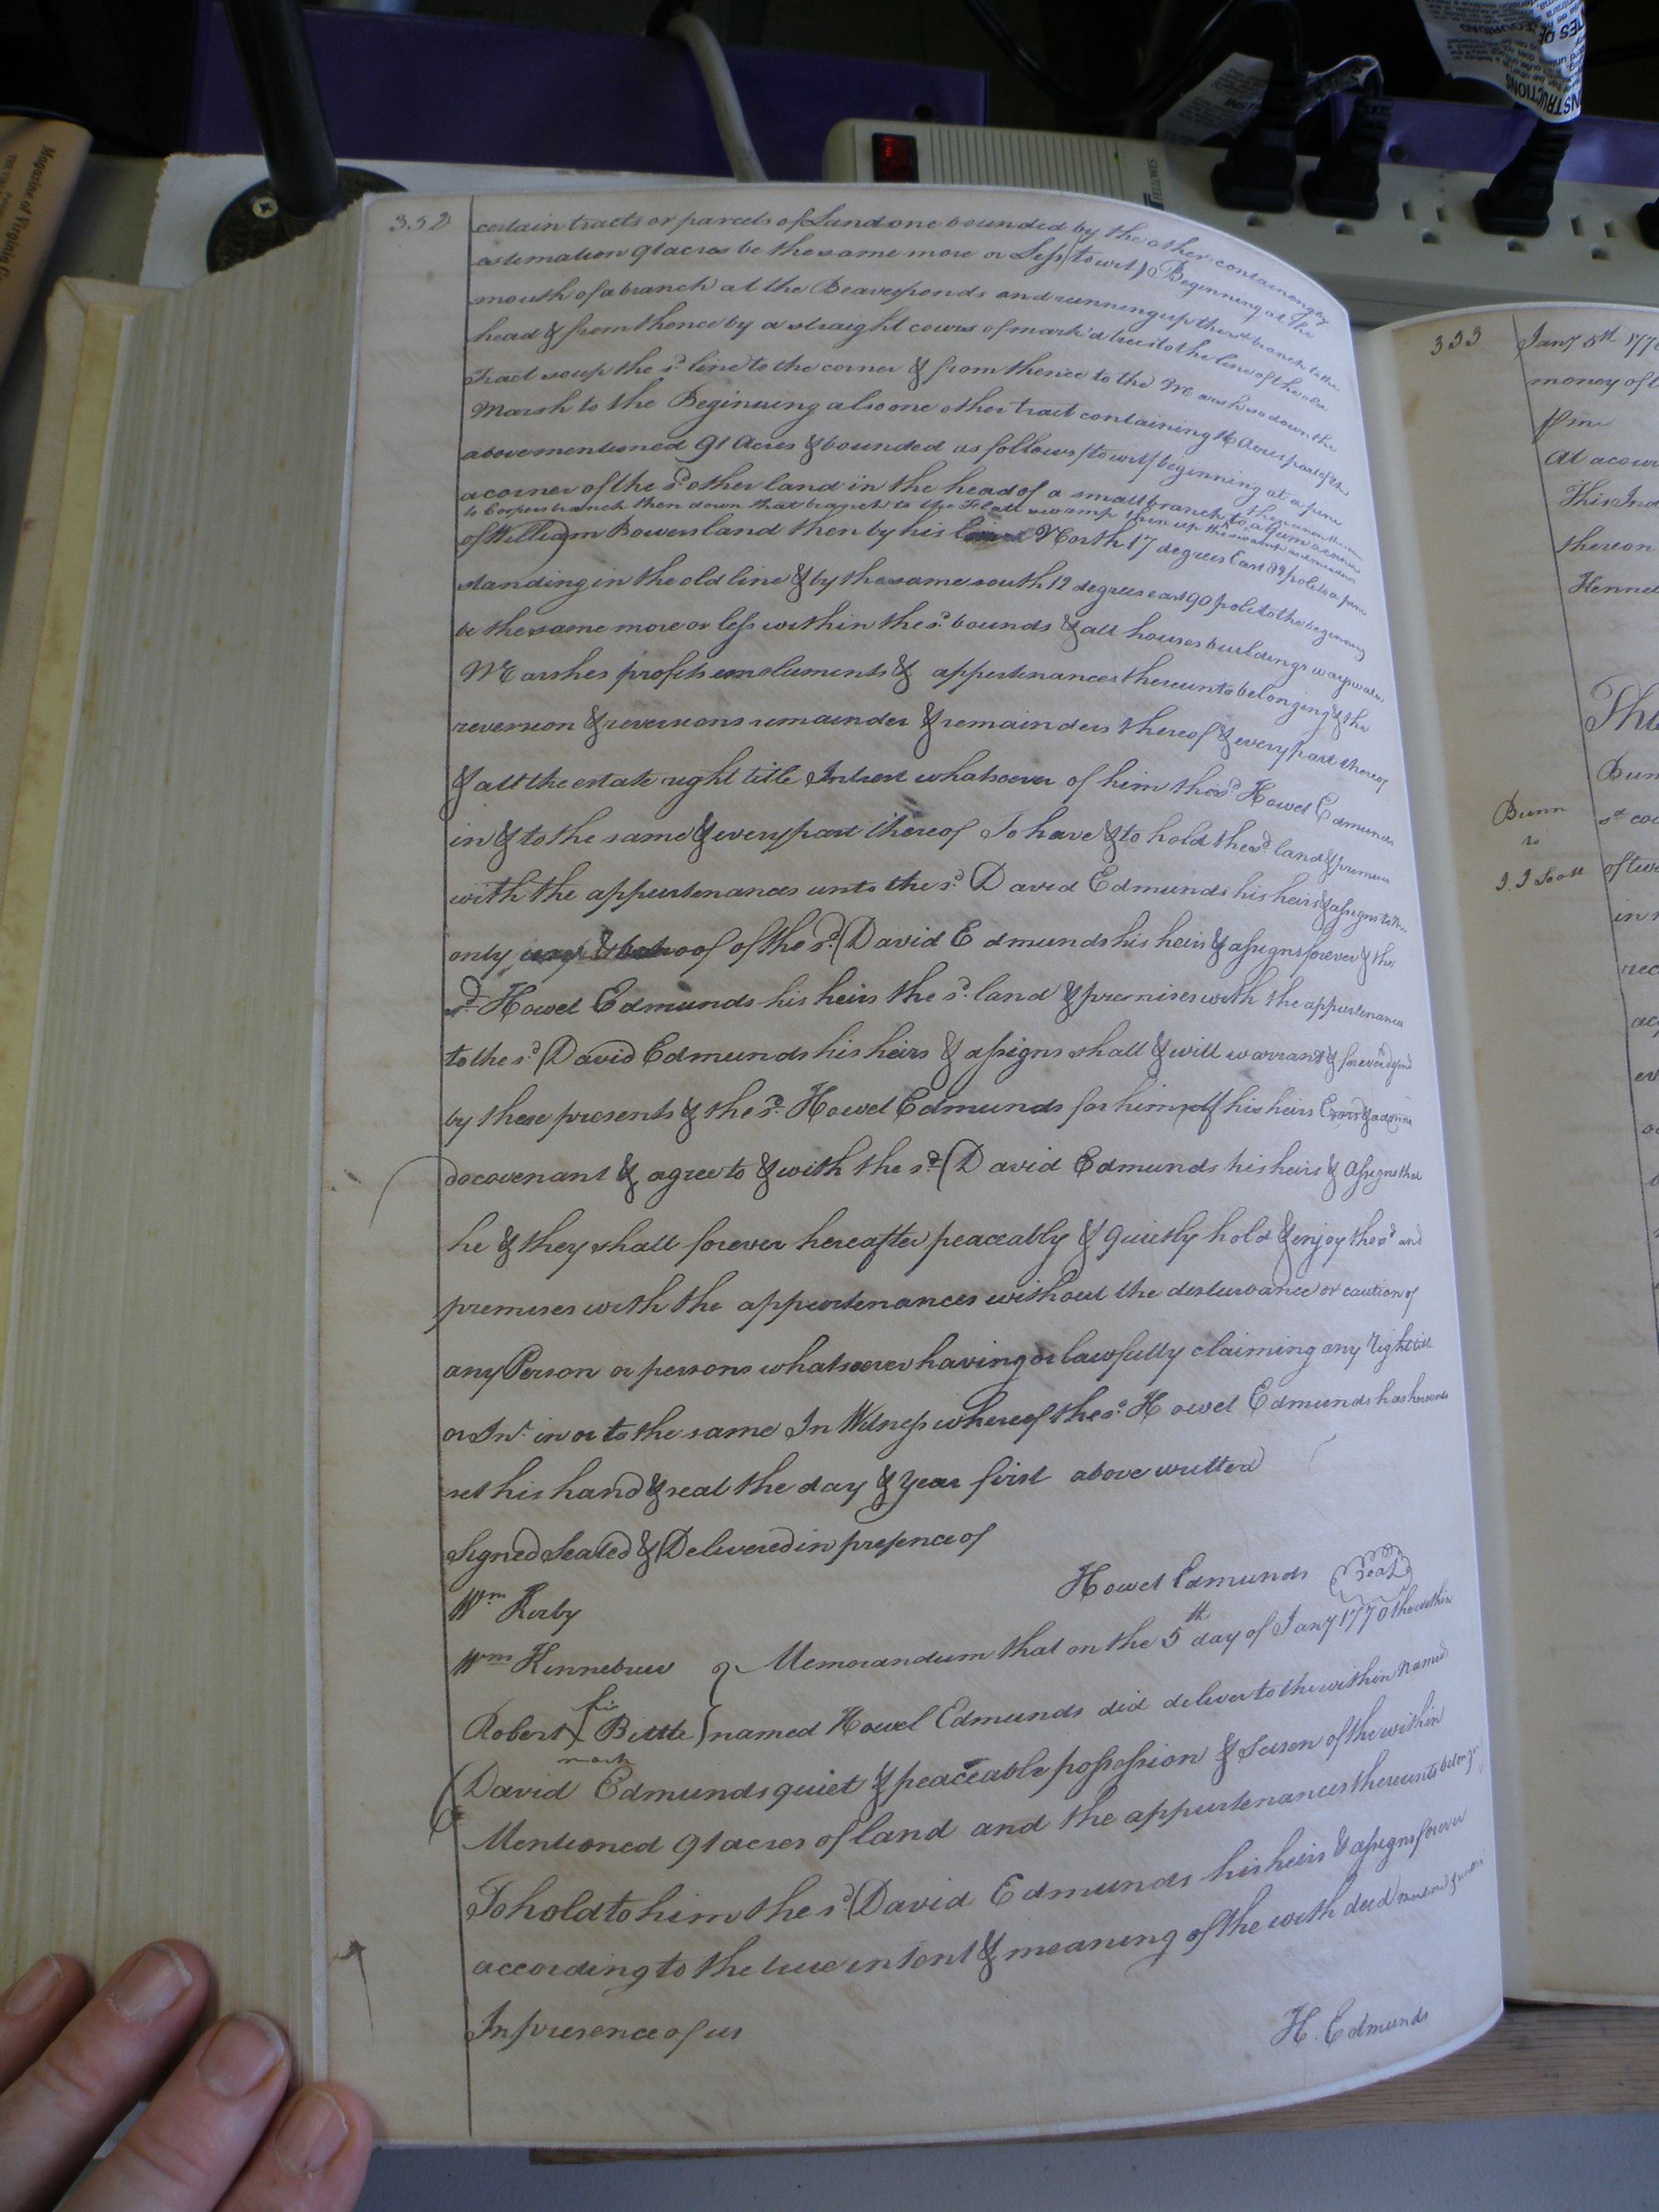 352
certain tracts or parcels of Land one bounded by the other containing by
estimation 91 acres be the same more or Less (to wit) Beginning at the
mouth of a branch at the Beaverponds and running up the sd branch to the
head & from thence by a straight cours of mark'd trees to the line of the old
Tract so up the sd line to the corner & from thence to the Marsh so down the
Marsh to the Beginning also one other tract containing 16 Acres part of the
abovementioned 91 Acres & bounded as follows (to wit) beginning at a pine
a corner of the sd other land in the head of a small branch then
to Coopers branch then down that branch to the Flatt swamp then up the swamp to a Gum a corner
of William Bowers land then by his North 17 degrees East 89 poles to a pine
standing in the old line & by the same south 12 degrees east 90 poles to the begining
be the same more or less within the sd bounds & all houses buildings ways waters
Marshes profits emoluments & appertenances thereunto belonging & the
reversion & reversions remainder & remainders thereof & every part thereof
& all the estate right title Intrest whatsoever of him the sd Howel Edmunds
in & to the same & every part thereof To have & to hold the sd land & premises
with the appurtenances unto the sd David Edmunds his heirs & assigns to the
only use & behoof of the sd David Edmunds his heirs & assigns forever & the
sd Howel Edmunds his heirs the sd land & premises with the appurtenances
to the sd David Edmunds his heirs & assigns shall & will warrant & forever defend
by these presents & the sd Howel Edmunds for himself his heirs Exors & admins
do covenant & agree to & with the sd David Edmunds his heirs & Assigns that
he & they shall forever hereafter peaceably & quietly hold & enjoy the sd and
premises with the appurtenances without the disturbance or caution of
any Person or persons whatsoever having or lawfully claiming any right title
or Int. in or to the same In Witness whereof the sd Howel Edmunds has hereunto
set his hand & seal the day & year first above written
Signed Sealed & Delivered in presence of
Howel Edmunds Seal
Wm Kirby
Wm Kennebrew Memorandum that on the 5th day of Jany 1770 the within
his
Robert X Bittle named Howel Edmunds did deliver to the within Named
mark
David Edmunds quiet & peaceable possession & Seisen of the within
Mentioned 91 acres of land and the appurtenances thereunto belongg
To hold to him the sd David Edmunds his heirs & assigns forever
according to the true intent & meaning of the with deed
In presence of us H. Edmunds
353
Jany 5th 1770
money of
At a cour
This Ind
thereon
Kenne
This
Bun
Bunn
to
J. J Scott
sd co
of tw
in
rec
ac
Magazine of Virginia G
FELLOWES
INSTRUCTIONS